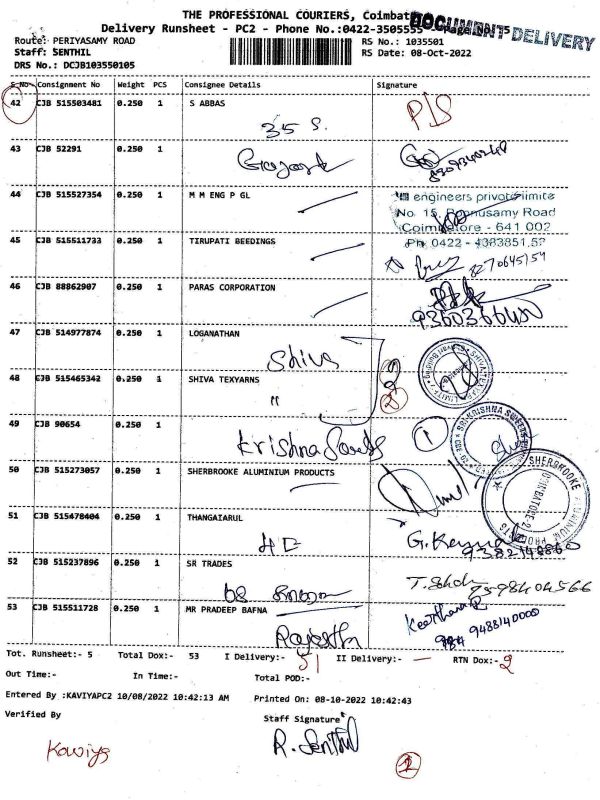 THE PROFESSIONAL COURIERS, Coimbat
DOCUMENT DELIVERY
Delivery Runsheet - PC2 - Phone No.:0422-3505555
Route: PERIYASAMY ROAD
RS No.: 1035501
Staff: SENTHIL
RS Date: 08-Oct-2022
DRS No.: DCJB103550105
S No Consignment No Weight PCS Consignee Details Signature
42 CJB 515503481 0.250 1 S ABBAS
35 S.
43 CJB 52291 0.250 1
44 CJB 515527354 0.250 1 M M ENG P GL
engineers private limite
No. 15, Ponnusamy Road
Coimbatore - 641 002
Ph 0422 - 4383851,52
45 CJB 515511733 0.250 1 TIRUPATI BEEDINGS
46 CJB 88862907 0.250 1 PARAS CORPORATION
47 CJB 514977874 0.250 1 LOGANATHAN
Shiva
48 CJB 515465342 0.250 1 SHIVA TEXYARNS
"
2
49 CJB 90654 0.250 1
Krishna
1
50 CJB 515273057 0.250 1 SHERBROOKE ALUMINIUM PRODUCTS
SHERBROOKE ALUMINIUM PRODUCTS
51 CJB 515478404 0.250 1 THANGAIARUL
9382148860
52 CJB 515237896 0.250 1 SR TRADES
53 CJB 515511728 0.250 1 MR PRADEEP BAFNA
Rajesh
9488140000
Tot. Runsheet:- 5 Total Dox:- 53 I Delivery:- 51 II Delivery:- — RTN Dox:- 2
Out Time:- In Time:- Total POD:-
Entered By :KAVIYAPC2 10/08/2022 10:42:13 AM Printed On: 08-10-2022 10:42:43
Verified By Staff Signature
Kaviya R. Senthil